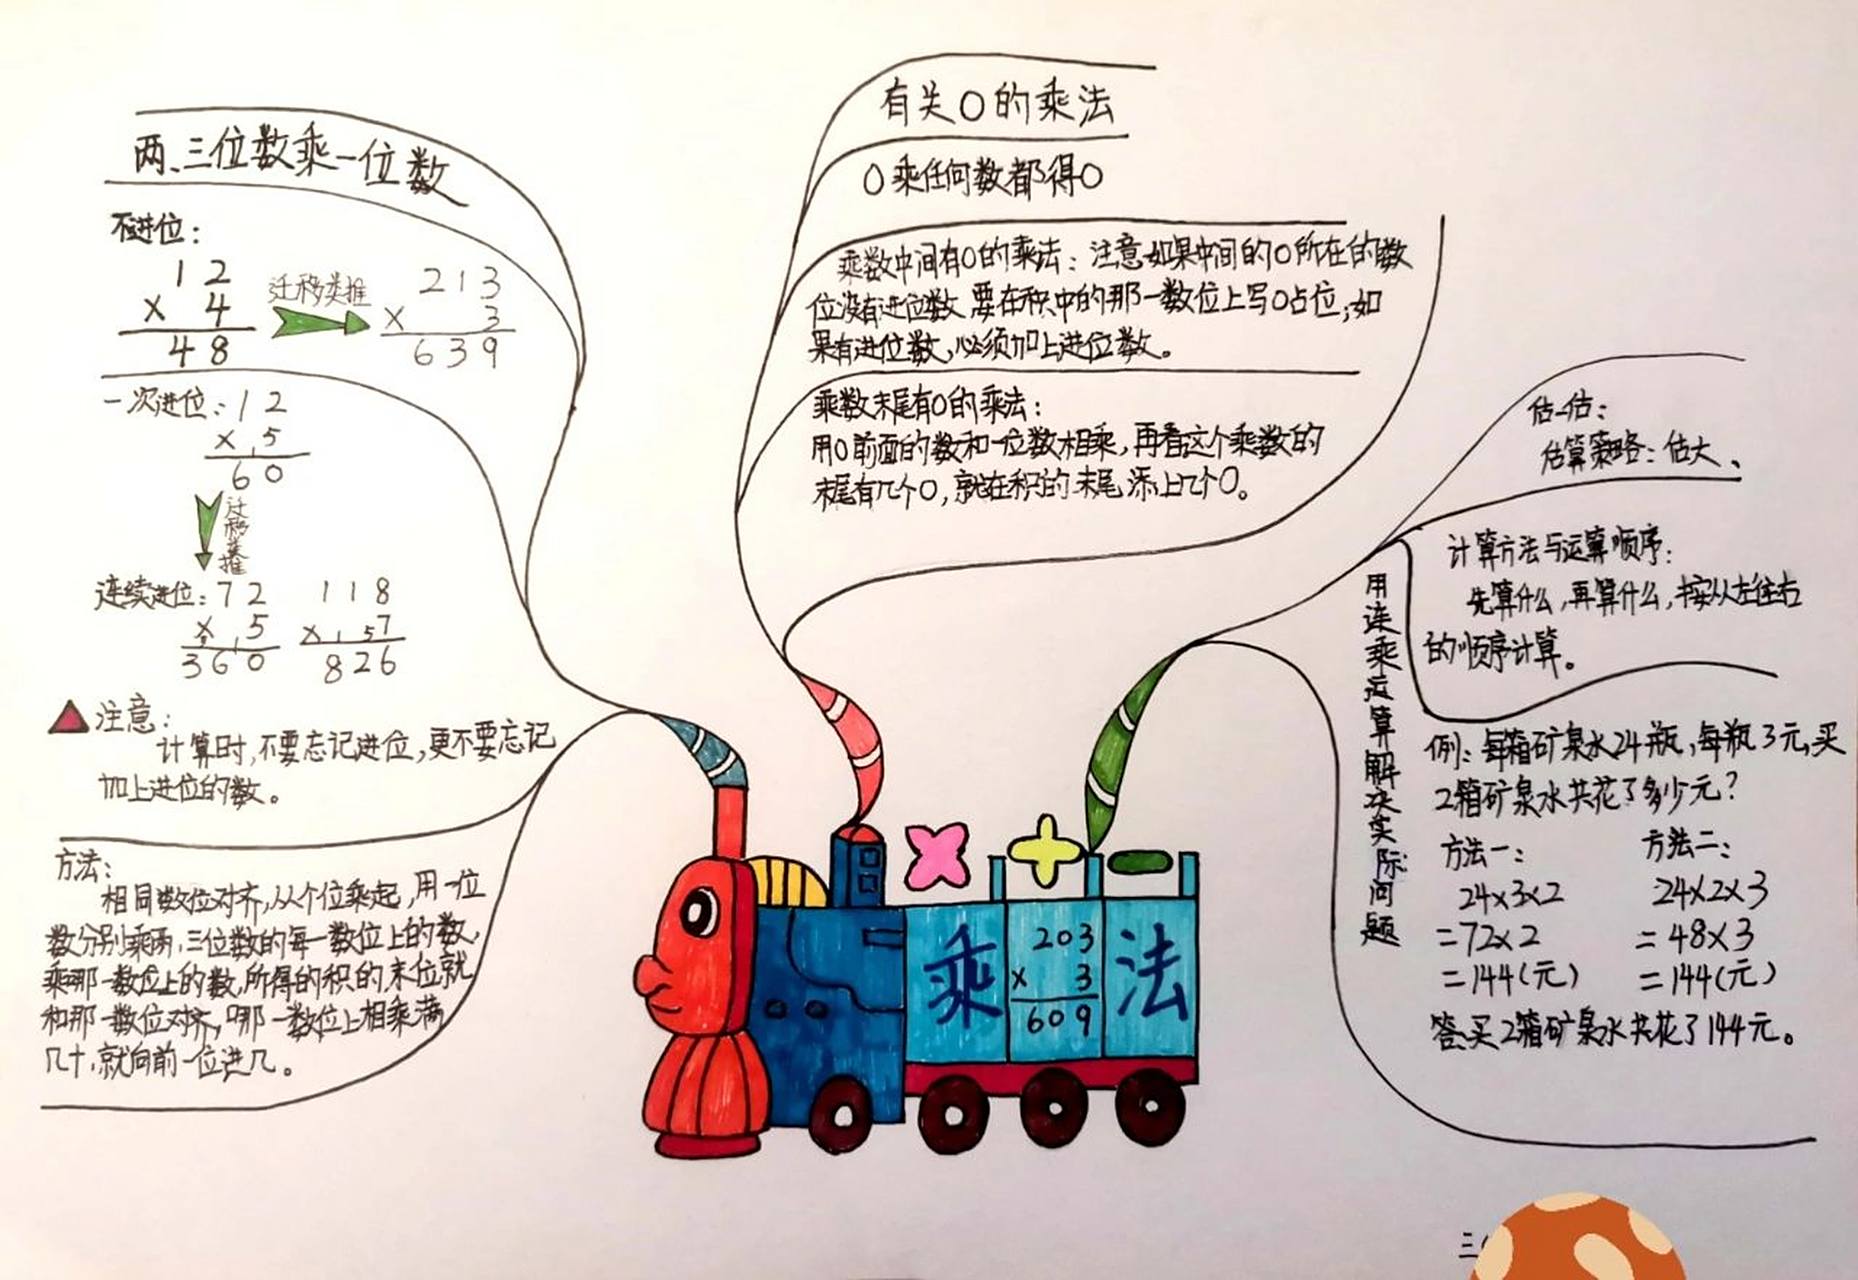 两、三位数乘一位数
不进位:
12
× 4
48
迁移类推
213
× 3
639
一次进位:12
× 5
60
迁移类推
连续进位:72
× 5
360
118
× 7
826
注意:
计算时,不要忘记进位,更不要忘记
加上进位的数。
方法:
相同数位对齐,从个位乘起,用一位
数分别乘两、三位数的每一数位上的数,
乘哪一数位上的数,所得的积的末位就
和那一数位对齐,哪一数位上相乘满
几十,就向前一位进几。
有关0的乘法
0乘任何数都得0
乘数中间有0的乘法:注意如果中间的0所在的数
位没有进位数,要在积中的那一数位上写0占位;如
果有进位数,必须加上进位数。
乘数末尾有0的乘法:
用0前面的数和一位数相乘,再看这个乘数的
末尾有几个0,就在积的末尾添上几个0。
用连乘运算解决实际问题
估一估:
估算策略:估大、
计算方法与运算顺序:
先算什么,再算什么,按从左往右
的顺序计算。
例:每箱矿泉水24瓶,每瓶3元,买
2箱矿泉水共花了多少元?
方法一:
24×3×2
=72×2
=144(元)
方法二:
24×2×3
=48×3
=144(元)
答:买2箱矿泉水共花了144元。
乘
203
× 3
609
法
三